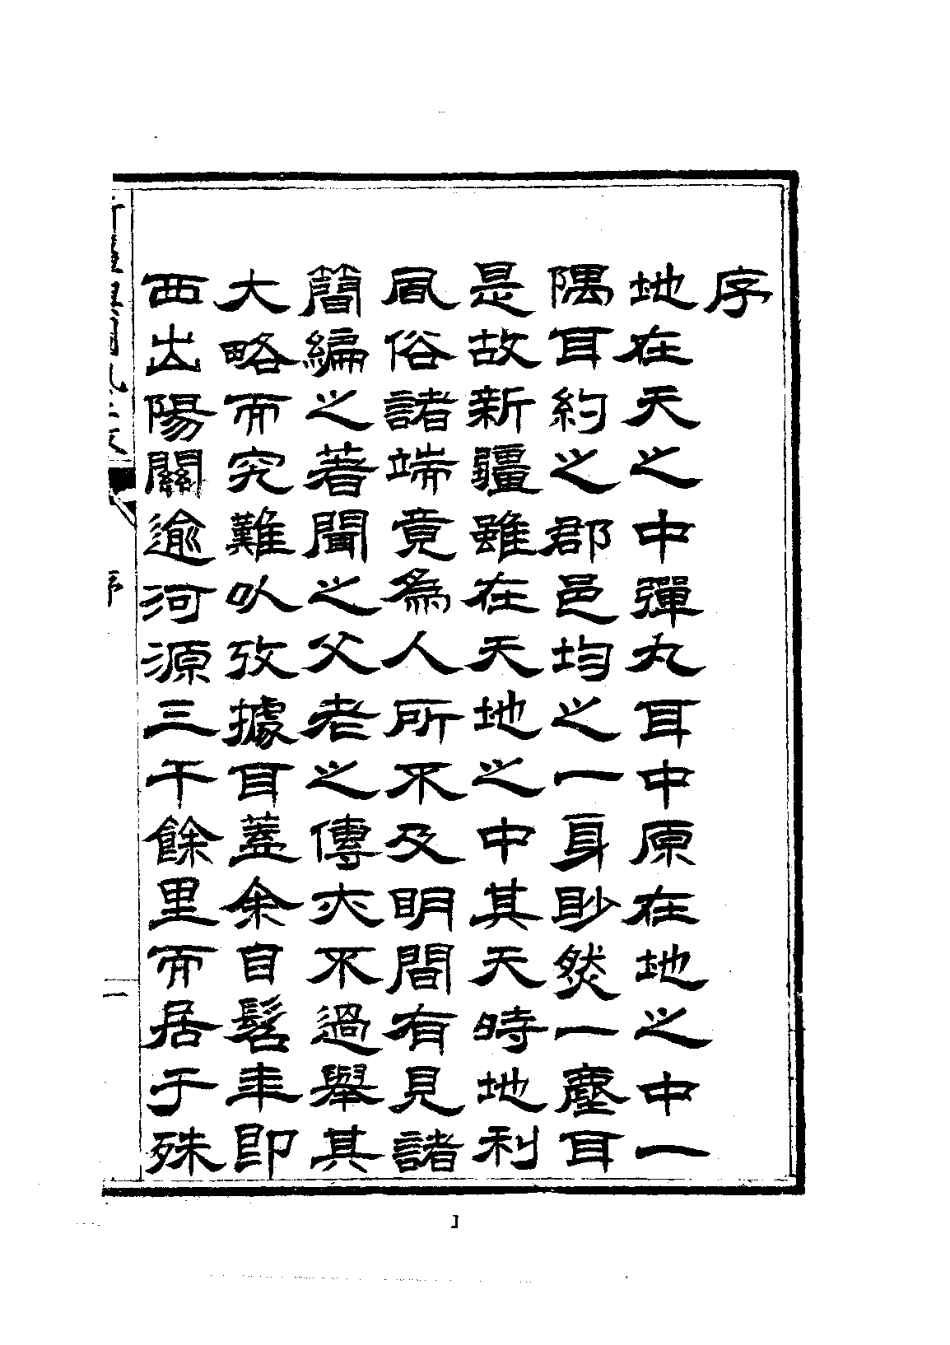 序
地在天之中彈丸耳中原在地之中一
隅耳約之郡邑均之一身眇然一塵耳
是故新疆雖在天地之中其天時地利
風俗諸端竟為人所不及明間有見諸
簡編之著聞之父老之傳亦不過舉其
大略而究難以攷據自蓋余自髫年即
西出陽關逾河源三千餘里而居于殊
序
一